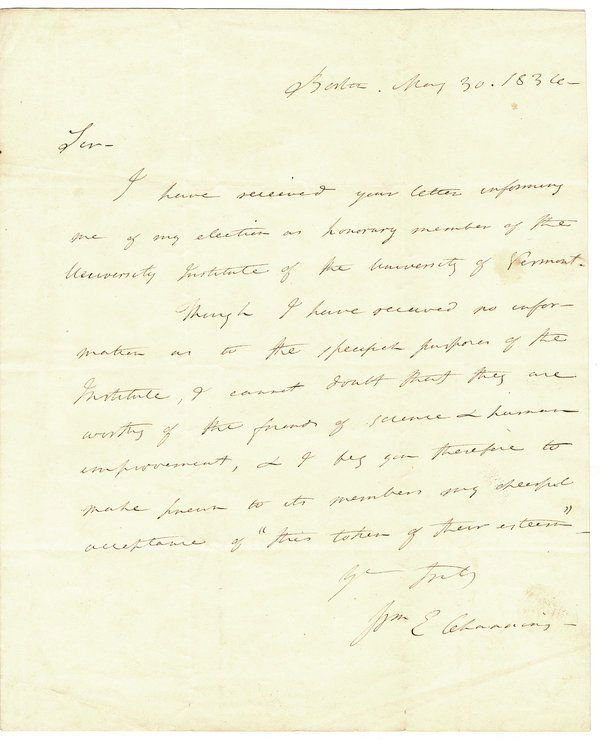 Boston. May 30. 1834-
Sir-
I have received your letter informing
me of my election as honorary member of the
University Institute of the University of Vermont.
Though I have received no infor-
mation as to the specifick purposes of the
Institute, I cannot doubt that they are
worthy of the friends of science & human
improvement, & I beg you therefore to
make known to its members my cheerful
acceptance of "this token of their esteem"-
Yrs truly
Wm E Channing-